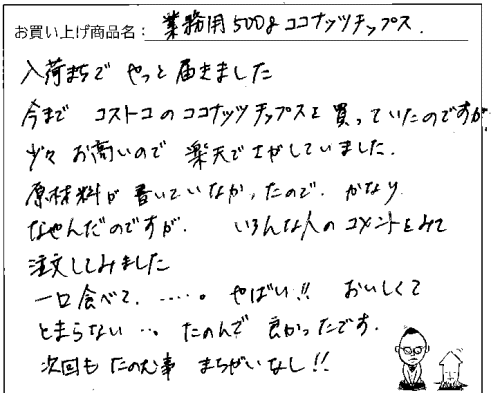 お買い上げ商品名: 業務用500gココナッツチップス.
入荷まちで やっと届きました
今まで コストコのココナッツチップスを買っていたのですが、
少々 お高いので 楽天でさがしていました.
原材料が書いていなかったので. かなり
なやんだのですが. いろんな人のコメントをみて
注文してみました
一口食べて. ……。 やばい!! おいしくて
とまらない…。 たのんで 良かったです.
次回も たのむ事 まちがいなし!!